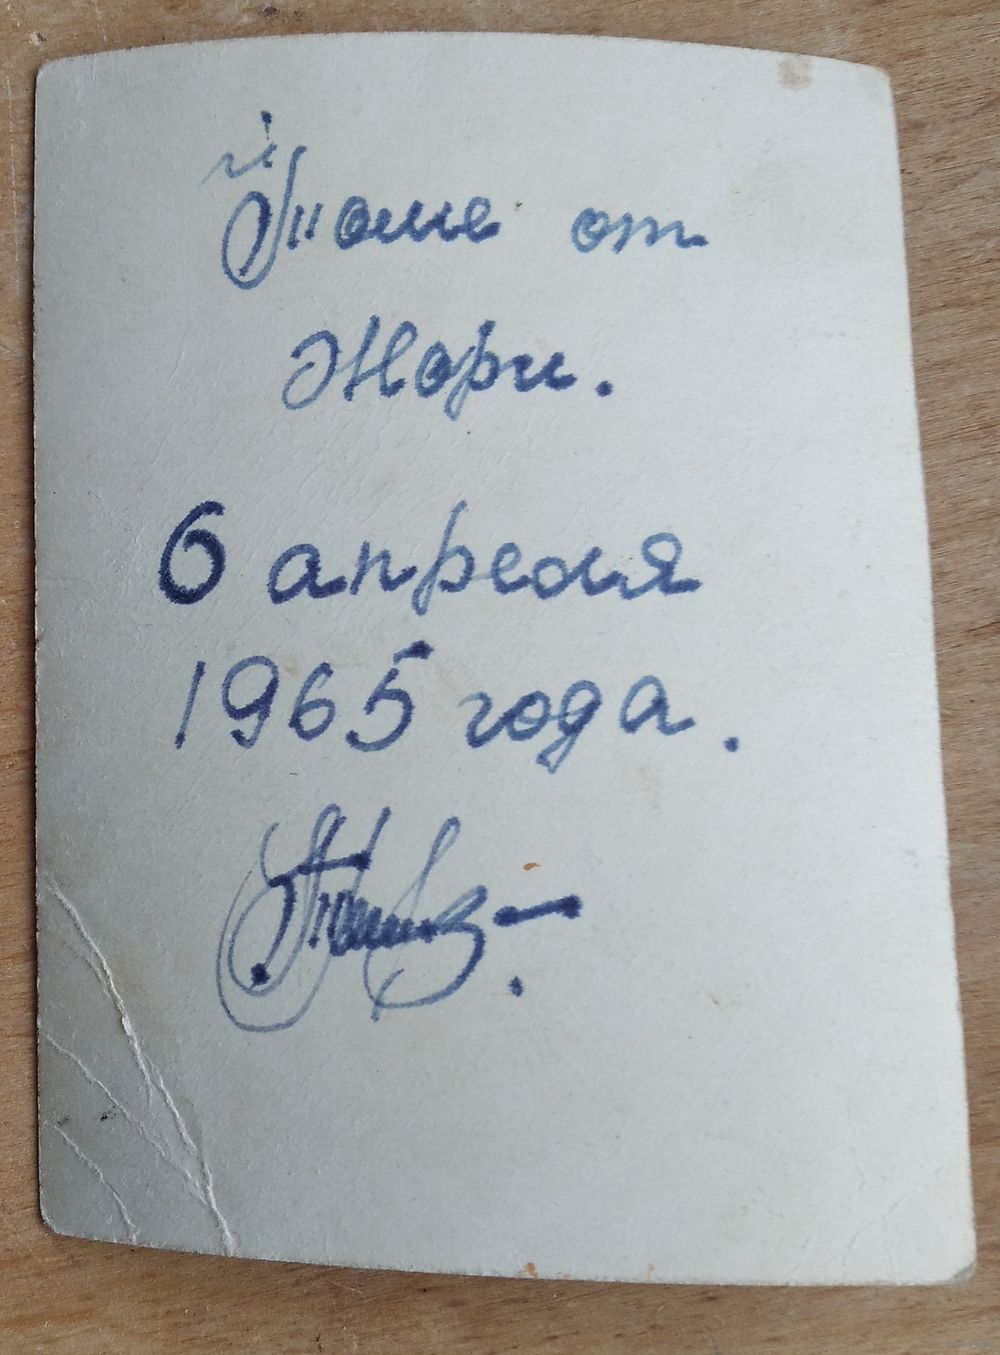 от
Жори.
6 апреля
1965 года.